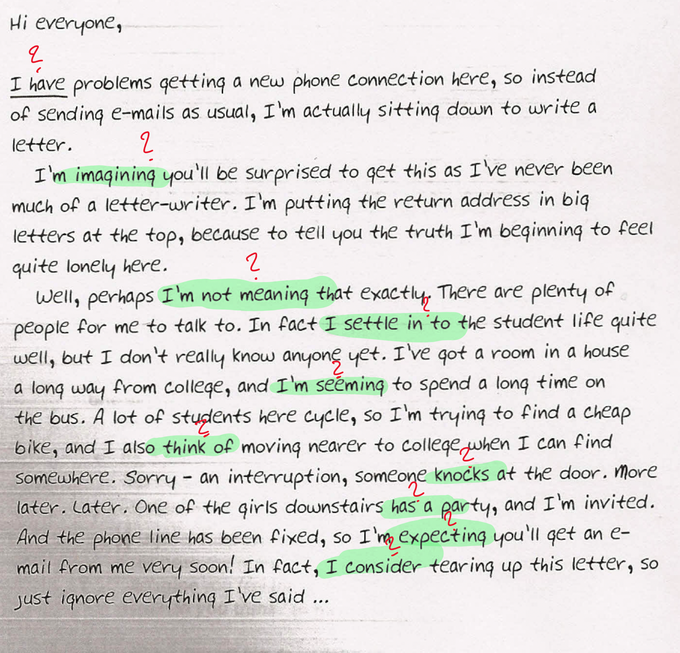 Hi everyone,
?
I have problems getting a new phone connection here, so instead
of sending e-mails as usual, I'm actually sitting down to write a
letter.
?
I'm imagining you'll be surprised to get this as I've never been
much of a letter-writer. I'm putting the return address in big
letters at the top, because to tell you the truth I'm beginning to feel
quite lonely here.
?
Well, perhaps I'm not meaning that exactly. There are plenty of
?
people for me to talk to. In fact I settle in to the student life quite
well, but I don't really know anyone yet. I've got a room in a house
?
a long way from college, and I'm seeming to spend a long time on
the bus. A lot of students here cycle, so I'm trying to find a cheap
?
bike, and I also think of moving nearer to college when I can find
?
somewhere. Sorry – an interruption, someone knocks at the door. More
?
later. Later. One of the girls downstairs has a party, and I'm invited.
?
And the phone line has been fixed, so I'm expecting you'll get an e-
?
mail from me very soon! In fact, I consider tearing up this letter, so
just ignore everything I've said ...